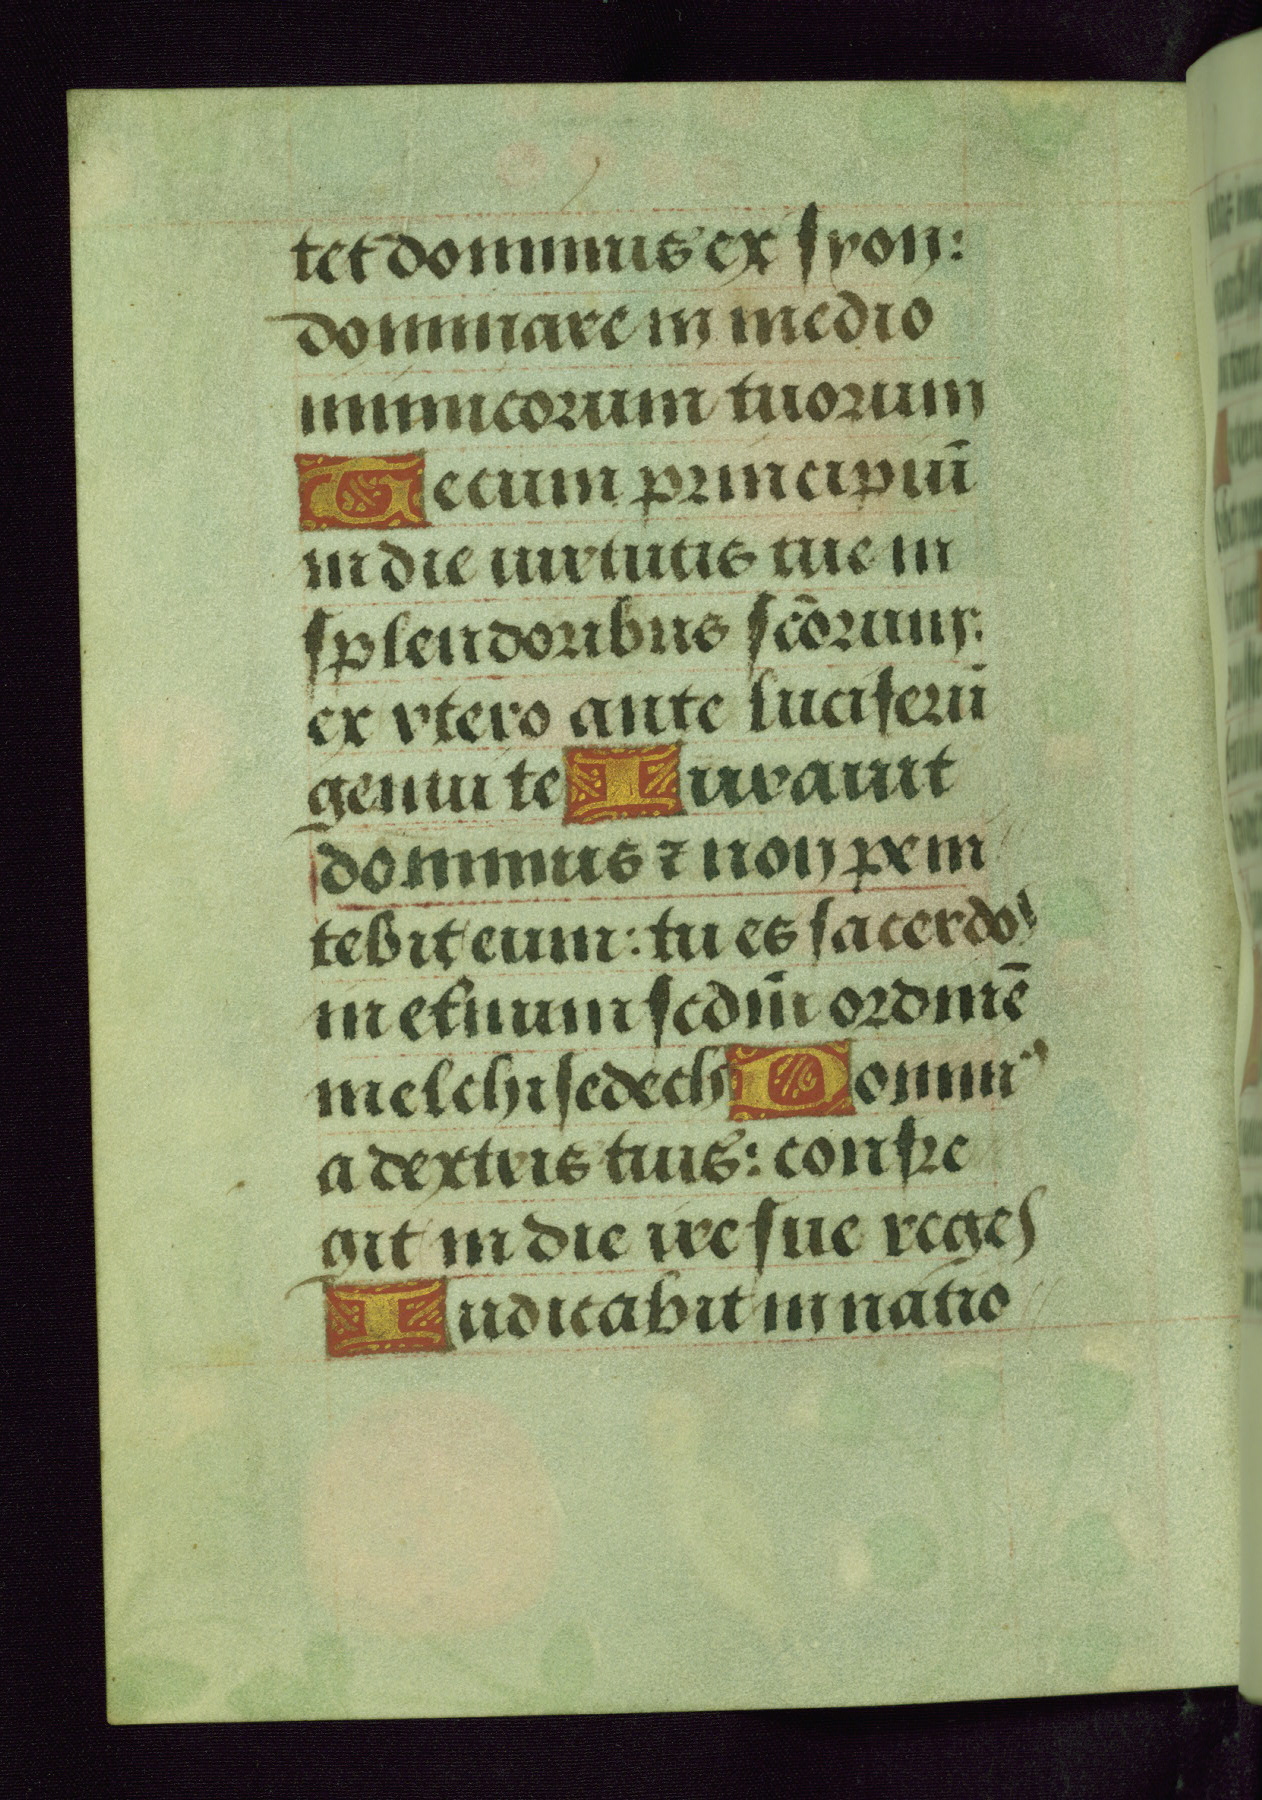 tet dominus ex syon:
dominare in medio
inimicorum tuorum
Tecum principiū
in die uirtutis tue in
splendoribus scōrum:
ex vtero ante luciferū
genui te Iurauit
dominus ⁊ non peni
tebit eum: tu es sacerdos
in et̉num scdm̄ ordinē
melchisedech Domin⁹
a dextris tuis: confre
git in die ire sue reges
Iudicabit in natio